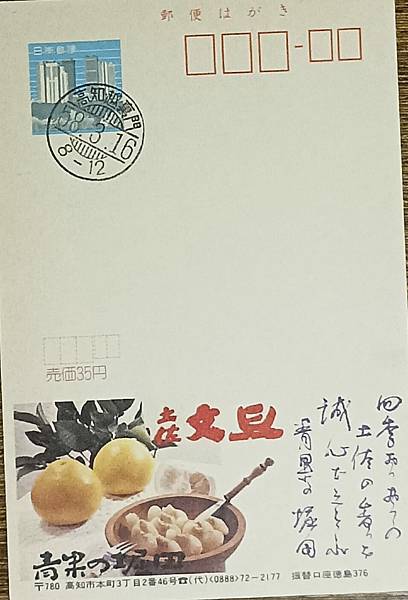 郵便はがき
日本郵便
高知
58.3.16
8-12
売価35円
土佐文旦
四季おりおりの
土佐の香りを
誠心
青果の堀田
青果の堀田
〒780 高知市本町3丁目2番46号☎(代)<0888>72-2177 振替口座徳島376